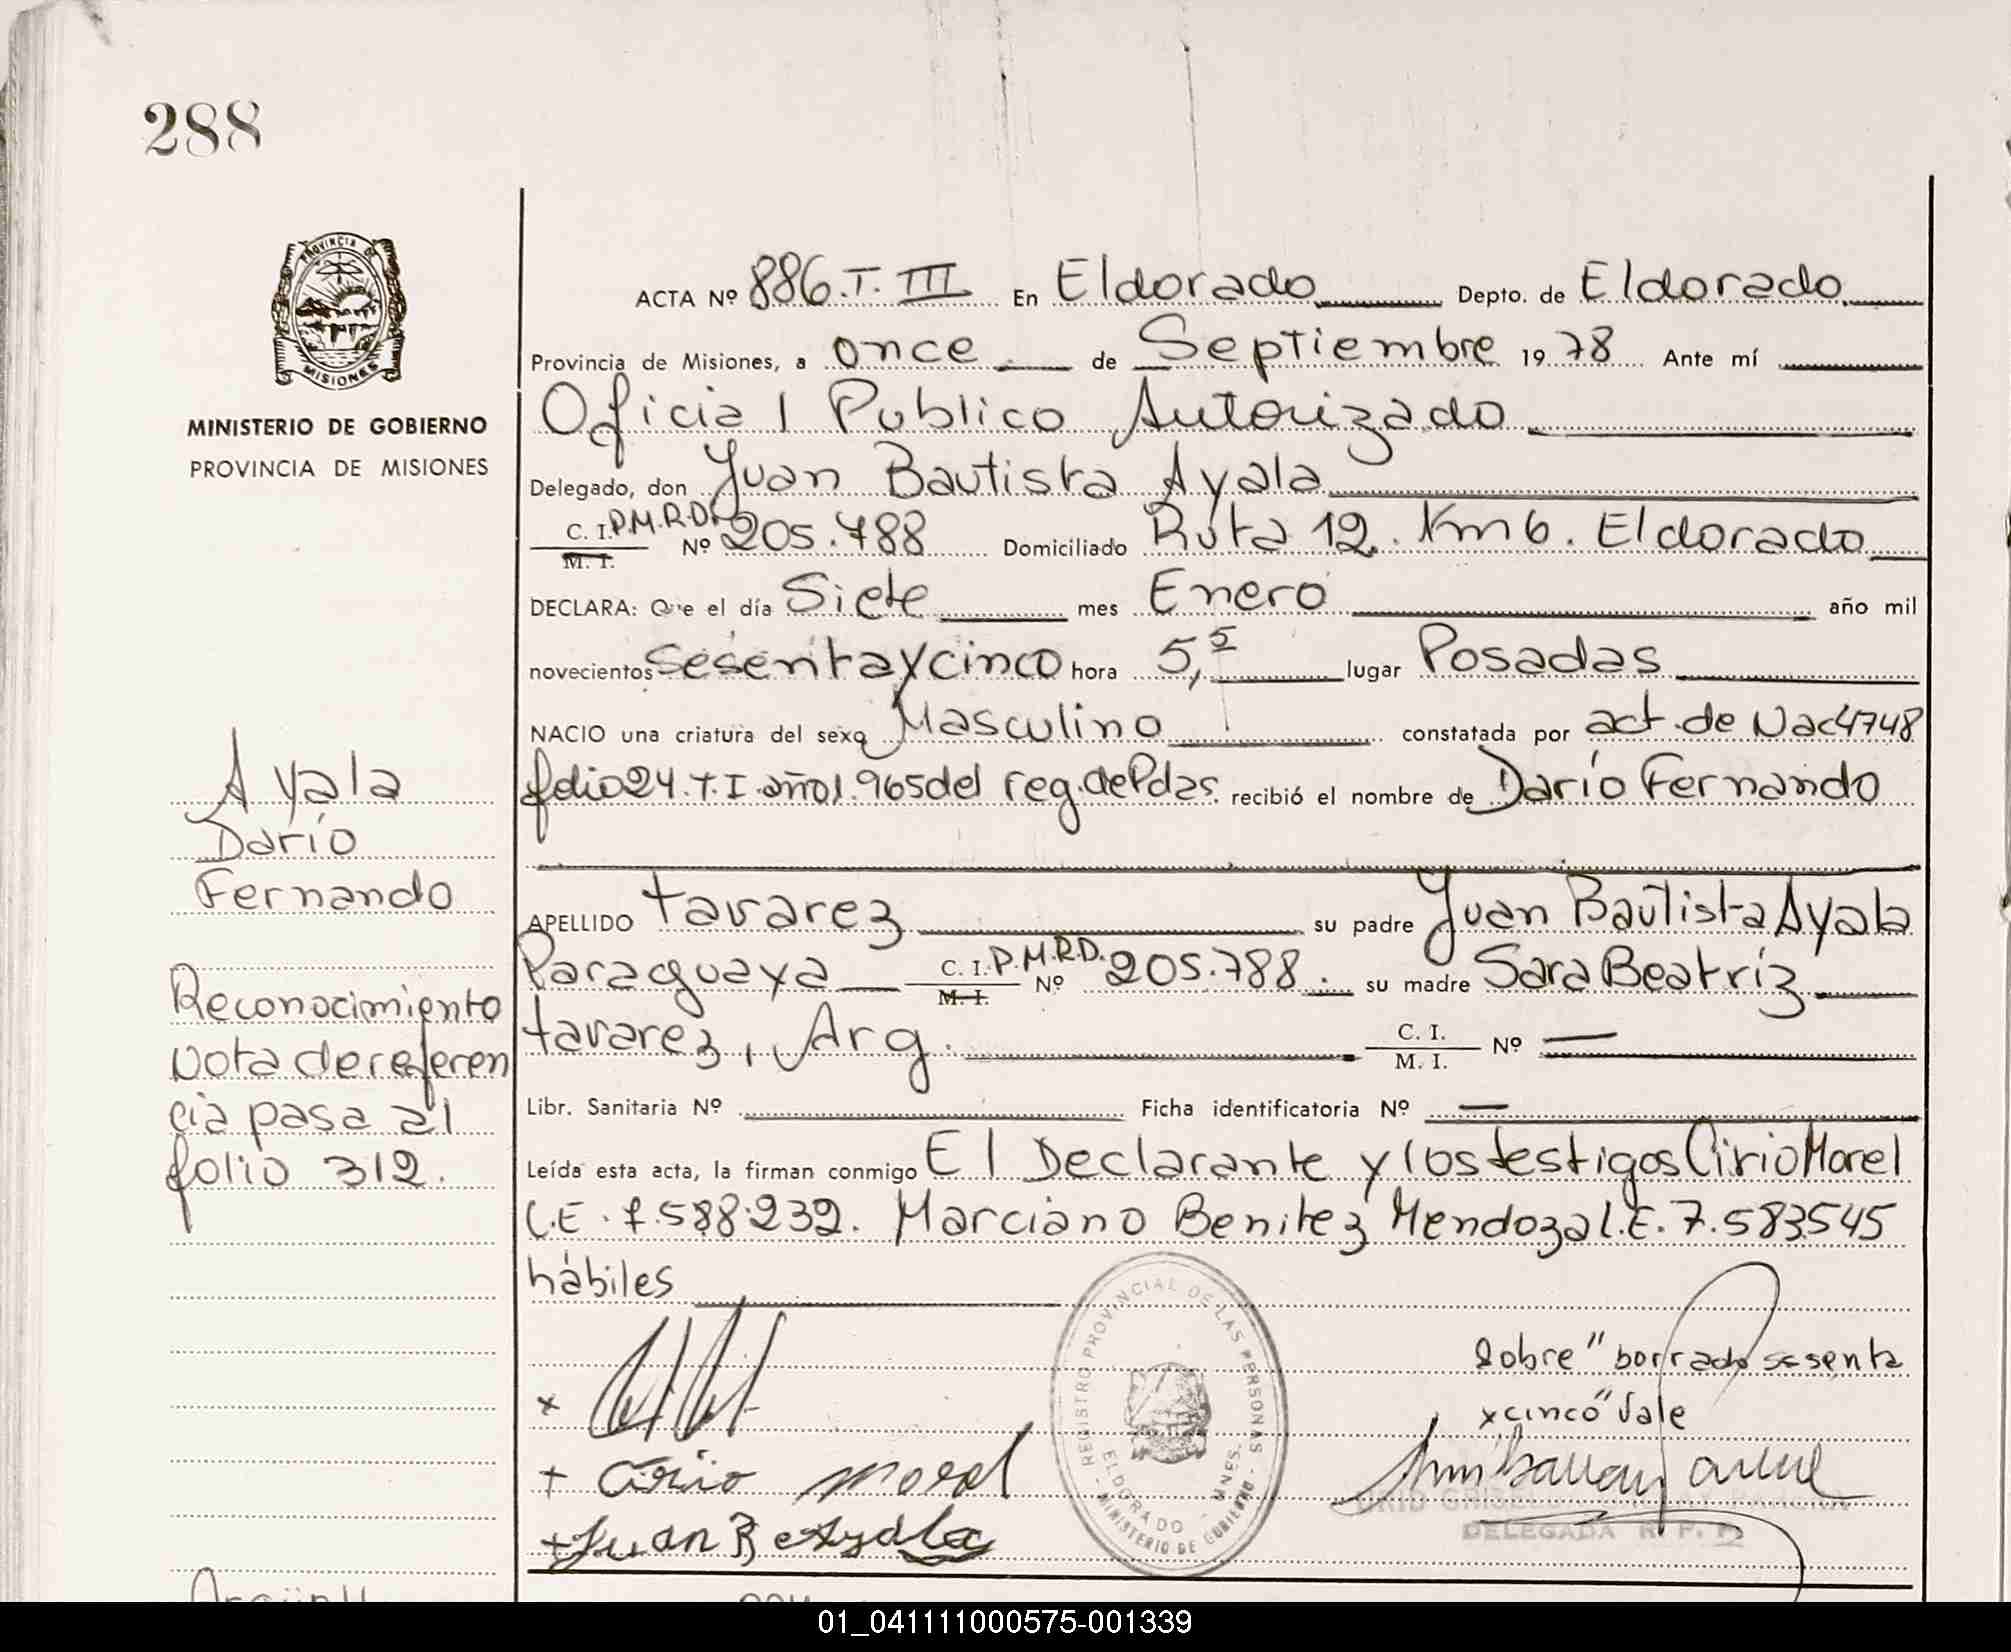 288
PROVINCIA DE
MISIONES
MINISTERIO DE GOBIERNO
PROVINCIA DE MISIONES
ACTA Nº 886.T. III En Eldorado Depto. de Eldorado
Provincia de Misiones, a once de Septiembre 1978 Ante mí
Oficial Publico Autorizado
Delegado, don Juan Bautista Ayala
C. I. P.M.R.D. Nº 205.788 Domiciliado Ruta 12. Km 6. Eldorado
M. I.
DECLARA: Que el día Siete mes Enero año mil
novecientos sesentaycinco hora 5,5 lugar Posadas
NACIO una criatura del sexo Masculino constatada por act. de Nac 4748
folio 24.T.I. año 1.965 del reg. de Pdas. recibió el nombre de Darío Fernando
APELLIDO tavarez su padre Juan Bautista Ayala
Paraguaya C. I. P.M.R.D. Nº 205.788. su madre Sara Beatríz
M. I.
tavarez, Arg. C. I. Nº —
M. I.
Libr. Sanitaria Nº Ficha identificatoria Nº —
Leída esta acta, la firman conmigo El Declarante y los testigos Cirio Morel
L.E. 7.588.232. Marciano Benitez Mendoza L.E. 7.583545
hábiles
Ayala
Darío
Fernando
Reconocimiento
nota dereferen
cia pasa al
folio 312.
Sobre "borrado sesenta
ycinco" Vale
x
+ Cirio morel
+ Juan B Ayala
REGISTRO PROVINCIAL DE LAS PERSONAS
ELDORADO - MNES.
MINISTERIO DE GOBIERNO
DELEGADA R. P. P.
01_041111000575-001339